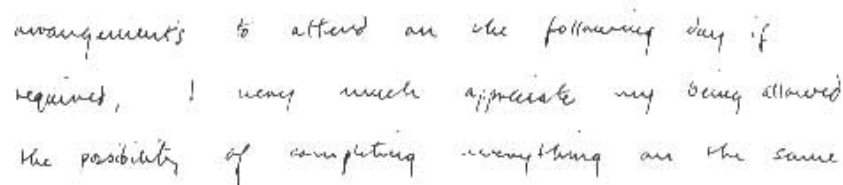 arrangements to attend on the following day if
required, I very much appreciate my being allowed
the possibility of completing everything on the same